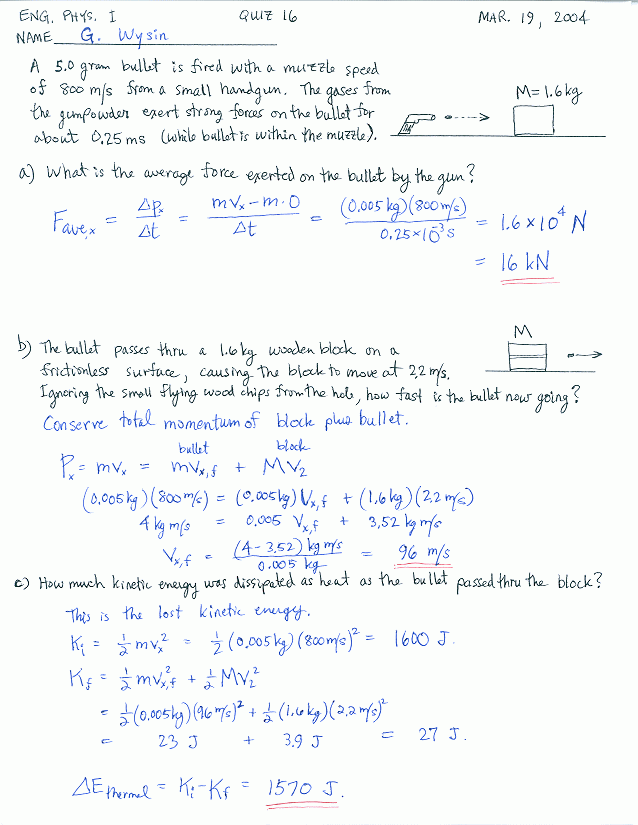 ENG. PHYS. I QUIZ 16 MAR. 19, 2004
NAME G. Wysin
A 5.0 gram bullet is fired with a muzzle speed
of 800 m/s from a small handgun. The gases from
the gunpowder exert strong forces on the bullet for
about 0.25 ms (while bullet is within the muzzle).
M=1.6kg
a) What is the average force exerted on the bullet by the gun?
Fave,x = Δpx/Δt = mVx-m·0/Δt = (0.005 kg)(800 m/s)/0.25×10⁻³ s = 1.6×10⁴ N
= 16 kN
M
b) The bullet passes thru a 1.6 kg wooden block on a
frictionless surface, causing the block to move at 2.2 m/s.
Ignoring the small flying wood chips from the hole, how fast is the bullet now going?
Conserve total momentum of block plus bullet.
bullet block
Px = mVx = mVx,f + MV2
(0.005 kg)(800 m/s) = (0.005 kg) Vx,f + (1.6 kg)(2.2 m/s)
4 kg m/s = 0.005 Vx,f + 3.52 kg m/s
Vx,f = (4-3.52) kg m/s / 0.005 kg = 96 m/s
c) How much kinetic energy was dissipated as heat as the bullet passed thru the block?
This is the lost kinetic energy.
Ki = ½ mvx² = ½ (0.005 kg)(800 m/s)² = 1600 J.
Kf = ½ mvx,f² + ½ MV2²
= ½ (0.005 kg)(96 m/s)² + ½ (1.6 kg)(2.2 m/s)²
= 23 J + 3.9 J = 27 J.
ΔEthermal = Ki-Kf = 1570 J.